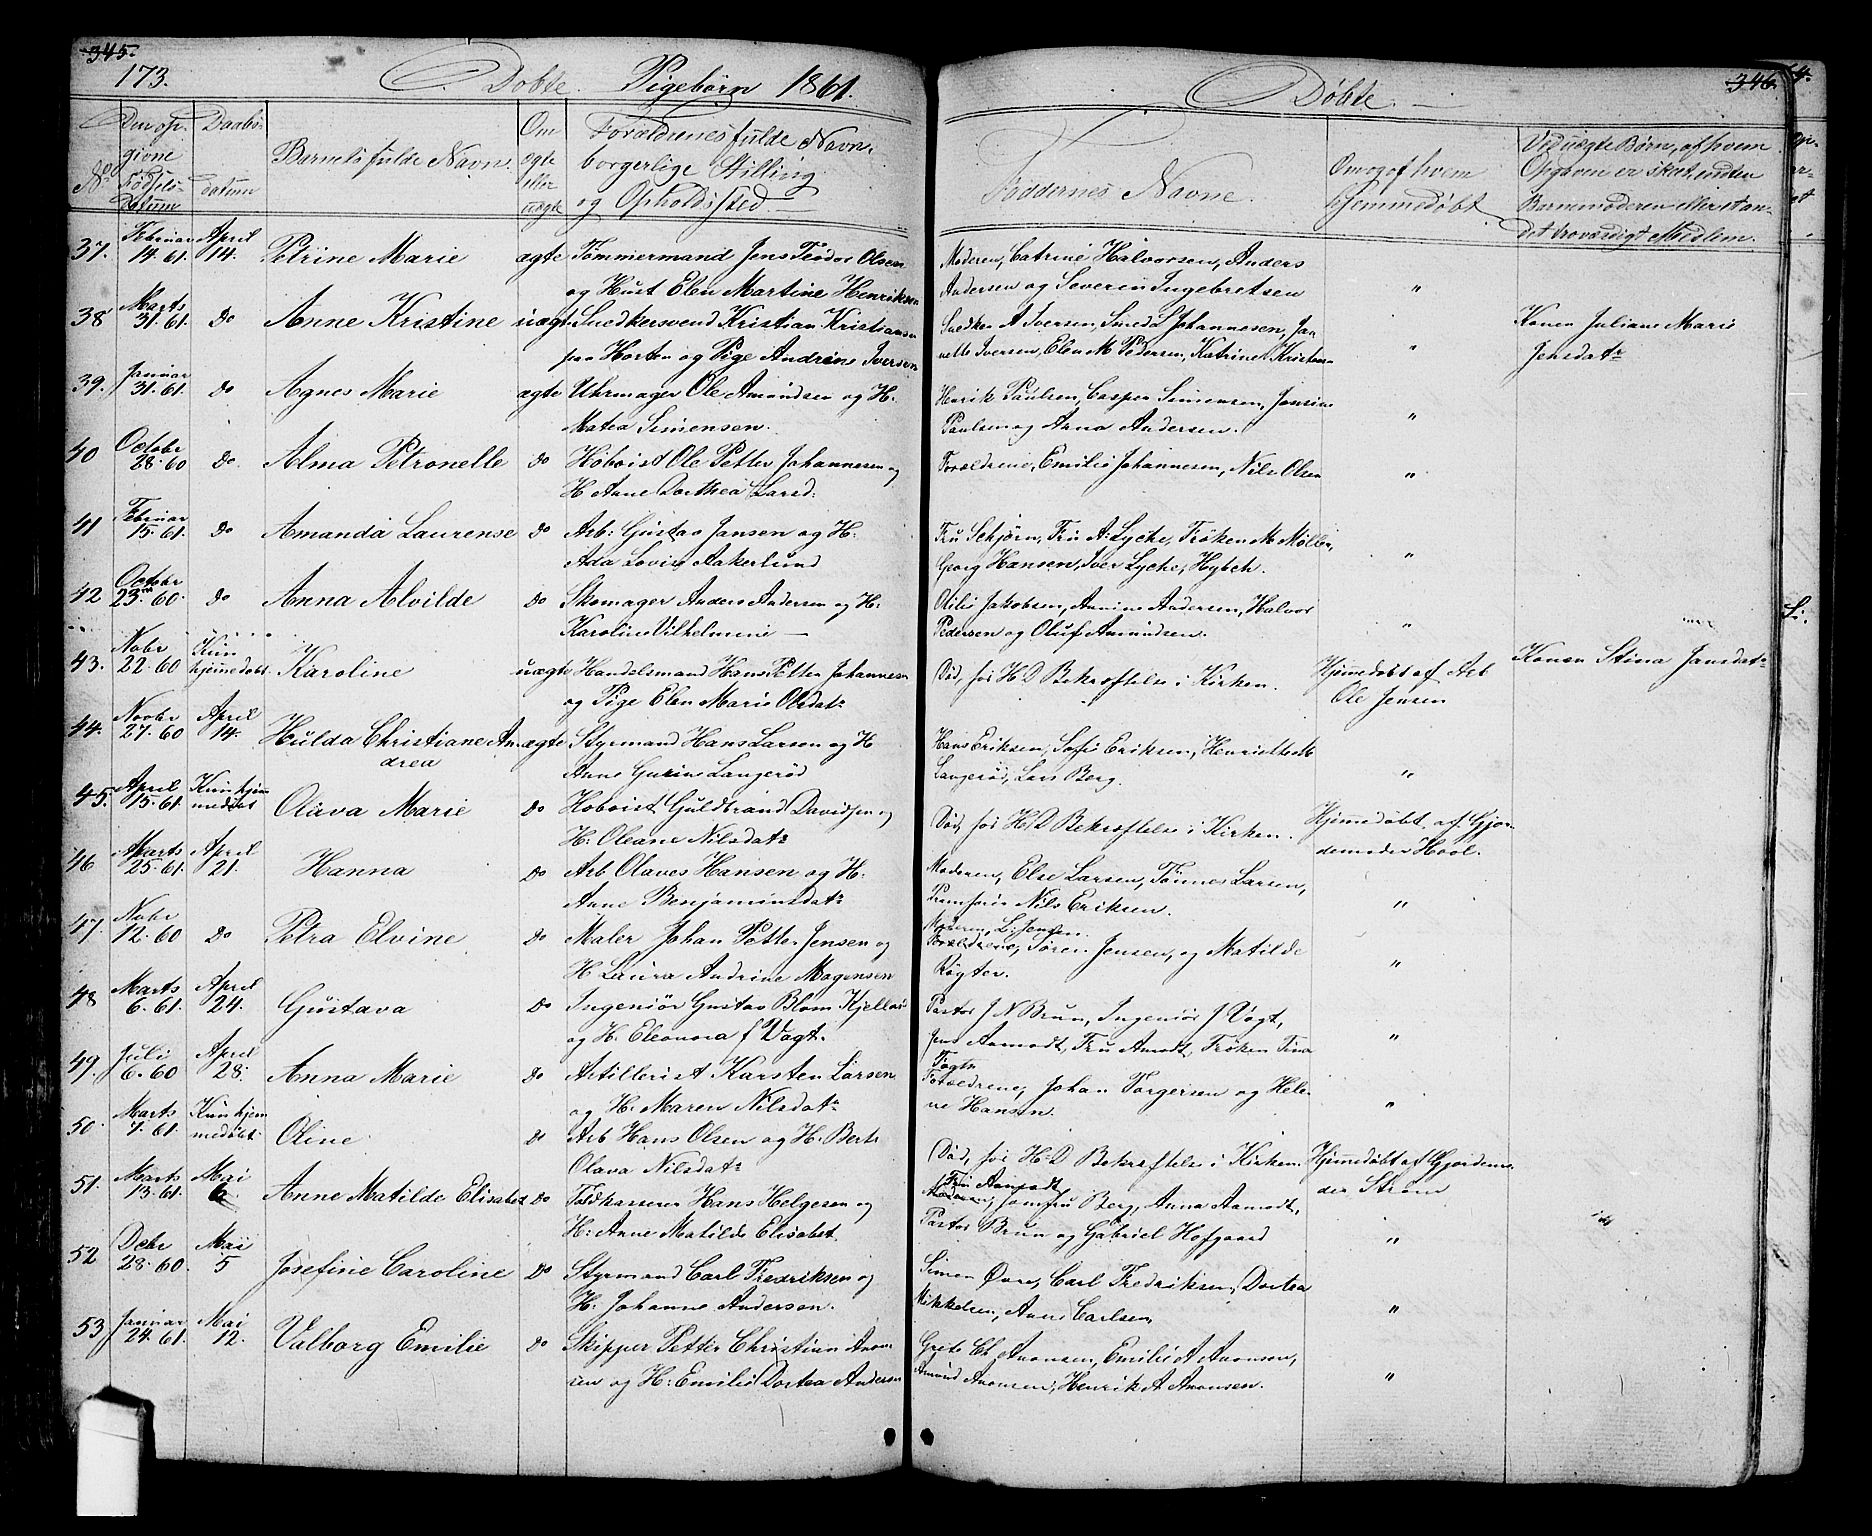 345.
173.
Døbte. Pigebørn 1861.
No
Den op-
givne
Fødsels-
Datum
Daabs-
datum
Barnets fulde Navn.
Om
ægte
eller
uægte
Forældrenes fulde Navn,
borgerlige Stilling
og Opholdssted
37. Februar 14. 61. April 14. Petrine Marie ægte Tømmermand Jens Teodor Olsen
og Hust Elen Martine Henriksen
38 Marts 31. 61. Do Anne Kristine uægt Snedkersvend Kristian Kristiansen
paa Horten og Pige Andrine Iversen
39. Januar 31. 61. Do Agnes Marie ægte Uhrmager Ole Amundsen og H.
Matea Simensen.
40 Octobr 28. 60 Do. Alma Petronelle Do Hoboist Ole Petter Johannesen og
H. Anne Dorthea Larsd:
41 Februar 15. 61. Do Amanda Laurense Do Arb: Gustav Jansen og H:
Ada Lovise Aakerlund
42 Octobr 23. 60. Do Anna Alvilde Do Skomager Anders Andersen og H:
Karoline Vilhelmine
43. Nobr 22. 60 Kun hjemmedøbt Karoline uægte Handelsmand Hans Petter Johannesen
og Pige Elen Marie Olsdatr
44. Novbr 27. 60 April 14. Hulda Christiane An- ægte Styrmand Hans Larsen og H
drea
Anne Gurine Langerød
45. April 15. 61. Kun hjem medøbt Olava Marie Do Hoboist Guldbrand Davidsen og
H: Oleane Nilsdatr
46 Marts 25. 61. April 21. Hanna Do Arb Olaves Hansen og H:
Anne Benjaminsdatr
47. Nobr 12. 60 Do Petra Elvine Do Maler Johan Petter Jensen og
H Laura Andrine Mogensen
48 Marts 6. 61. April 24. Gustava Do Ingeniør Gustav Blom Kjellerød
og H. Eleonora f Vogt.
49. Juli 6. 60 April 28. Anna Marie Do Artillerist Karsten Larsen
og H: Maren Nilsdatr
50. Marts 7. 61. Kun hjem medøbt. Oline Do Arb Hans Olsen og H. Bert
Olava Nilsdatr
51. Marts 13. 61. Mai 6 Anne Matilde Elisabet Do Toldkasserer Hans Helgesen og
H: Anne Matilde Elisabet
52 Debr 28. 60. Mai 5 Josefine Caroline Do Styrmand Carl Fredriksen og
H. Johanne Andersen.
53 Januar 24. 61. Mai 12. Valborg Emilie Do Skipper Petter Christian Anon
sen og H: Emilie Dortea Andersen
346.
Døbte.
Faddernes Navne.
Om og af hvem
hjemmedøbt
Ved uægte Børn, af hvem
Opgaven er skat, uden
Barnemoderen eller an-
det troværdigt Medlem.
Moderen, Catrine Halvorsen, Anders
Andersen og Severin Ingebretsen "
Snedker A Iversen, Smed L Johannesen, Jan
nette Iversen, Elen M Pedersen, Katrine Kristens " Konen Juliane Marie
Jensdatr
Henrik Paulsen, Casper Simensen, Jensine
Paulsen og Anna Andersen. "
Forældrene, Emilie Johannesen, Nils Olsen "
Fru Schjørn, Fru A: Lyche, Frøken M Møller,
Georg Hansen, Iver Lyche, "
Otilie Jakobsen, Annine Andersen, Halvor
Pedersen og Oluf Amundsen. "
Død, før H. D Bekræftelse i Kirken. Hjemmedøbt af Arb
Ole Jensen Konen Stina Jansdatr
Hans Eriksen, Sofie Eriksen, Henriette M
Langerød, Lars Berg. "
Død, før H. D Bekræftelse i Kirken. Hjemmedøbt af Gjor-
demoder Hool.
Moderen, Else Larsen, Tønnes Larsen,
Nils Eriksen. "
L. Jensen.
Forældrene, Søren Jensen, og Matilde
Røgter. "
Pastor J N Brun, Ingeniør J Vogt,
Jens Aamodt, Fru Aamodt, Frøken Tina
Vogt. "
Forældrene, Johan Torgersen og Hele-
ne Hansen. "
Død, før H. D Bekræftelse i Kirken. Hjemmedøbt af Gjordemo-
der Strøm
Fru Aamodt
Moderen, Jomfru Berg, Anna Aamodt,
Pastor Brun og Gabriel Hofgaard "
Simen Øvre, Carl Fredriksen, Dortea
Mikkelsen, Anne Carlsen "
Grete Ch Anonsen, Emilie A Anonsen,
Amund Anonsen, Henrik A Anonsen. "